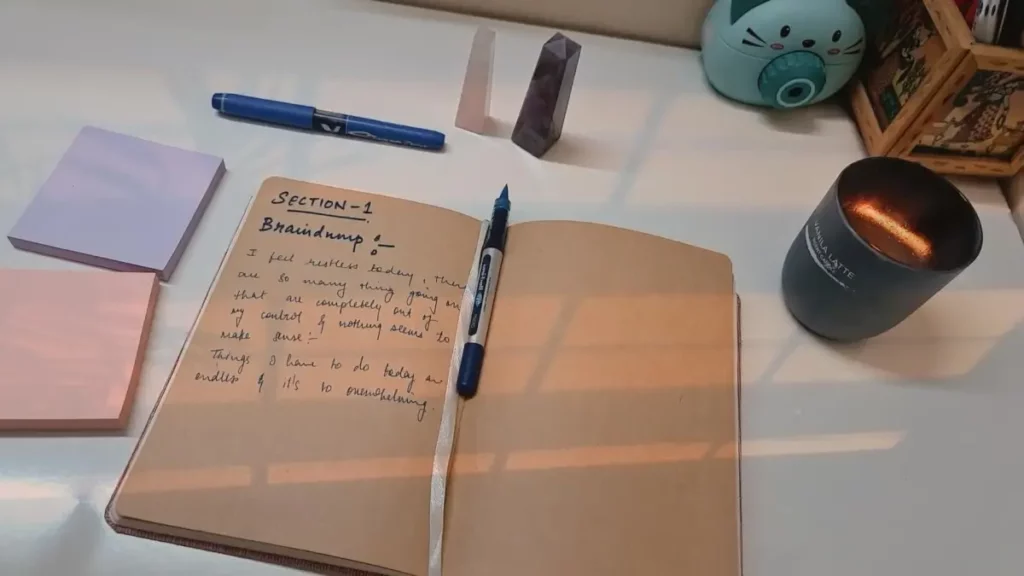 SECTION-1
Braindump :-
I feel restless today, there
are so many thing going on
that are completely out of
my control & nothing seems to
make sense :-
Things I have to do today are
endless & it's to overwhelming.
LATTE